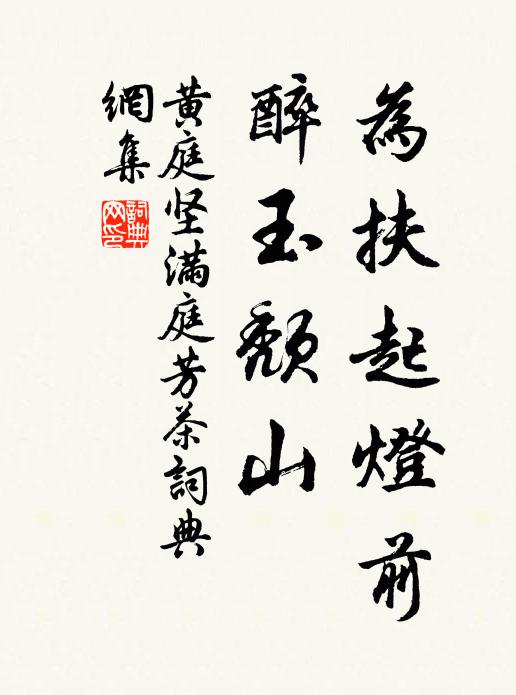 為扶起燈前
醉玉頹山
黄庭坚满庭芳茶詞典
網集
詞典
网印